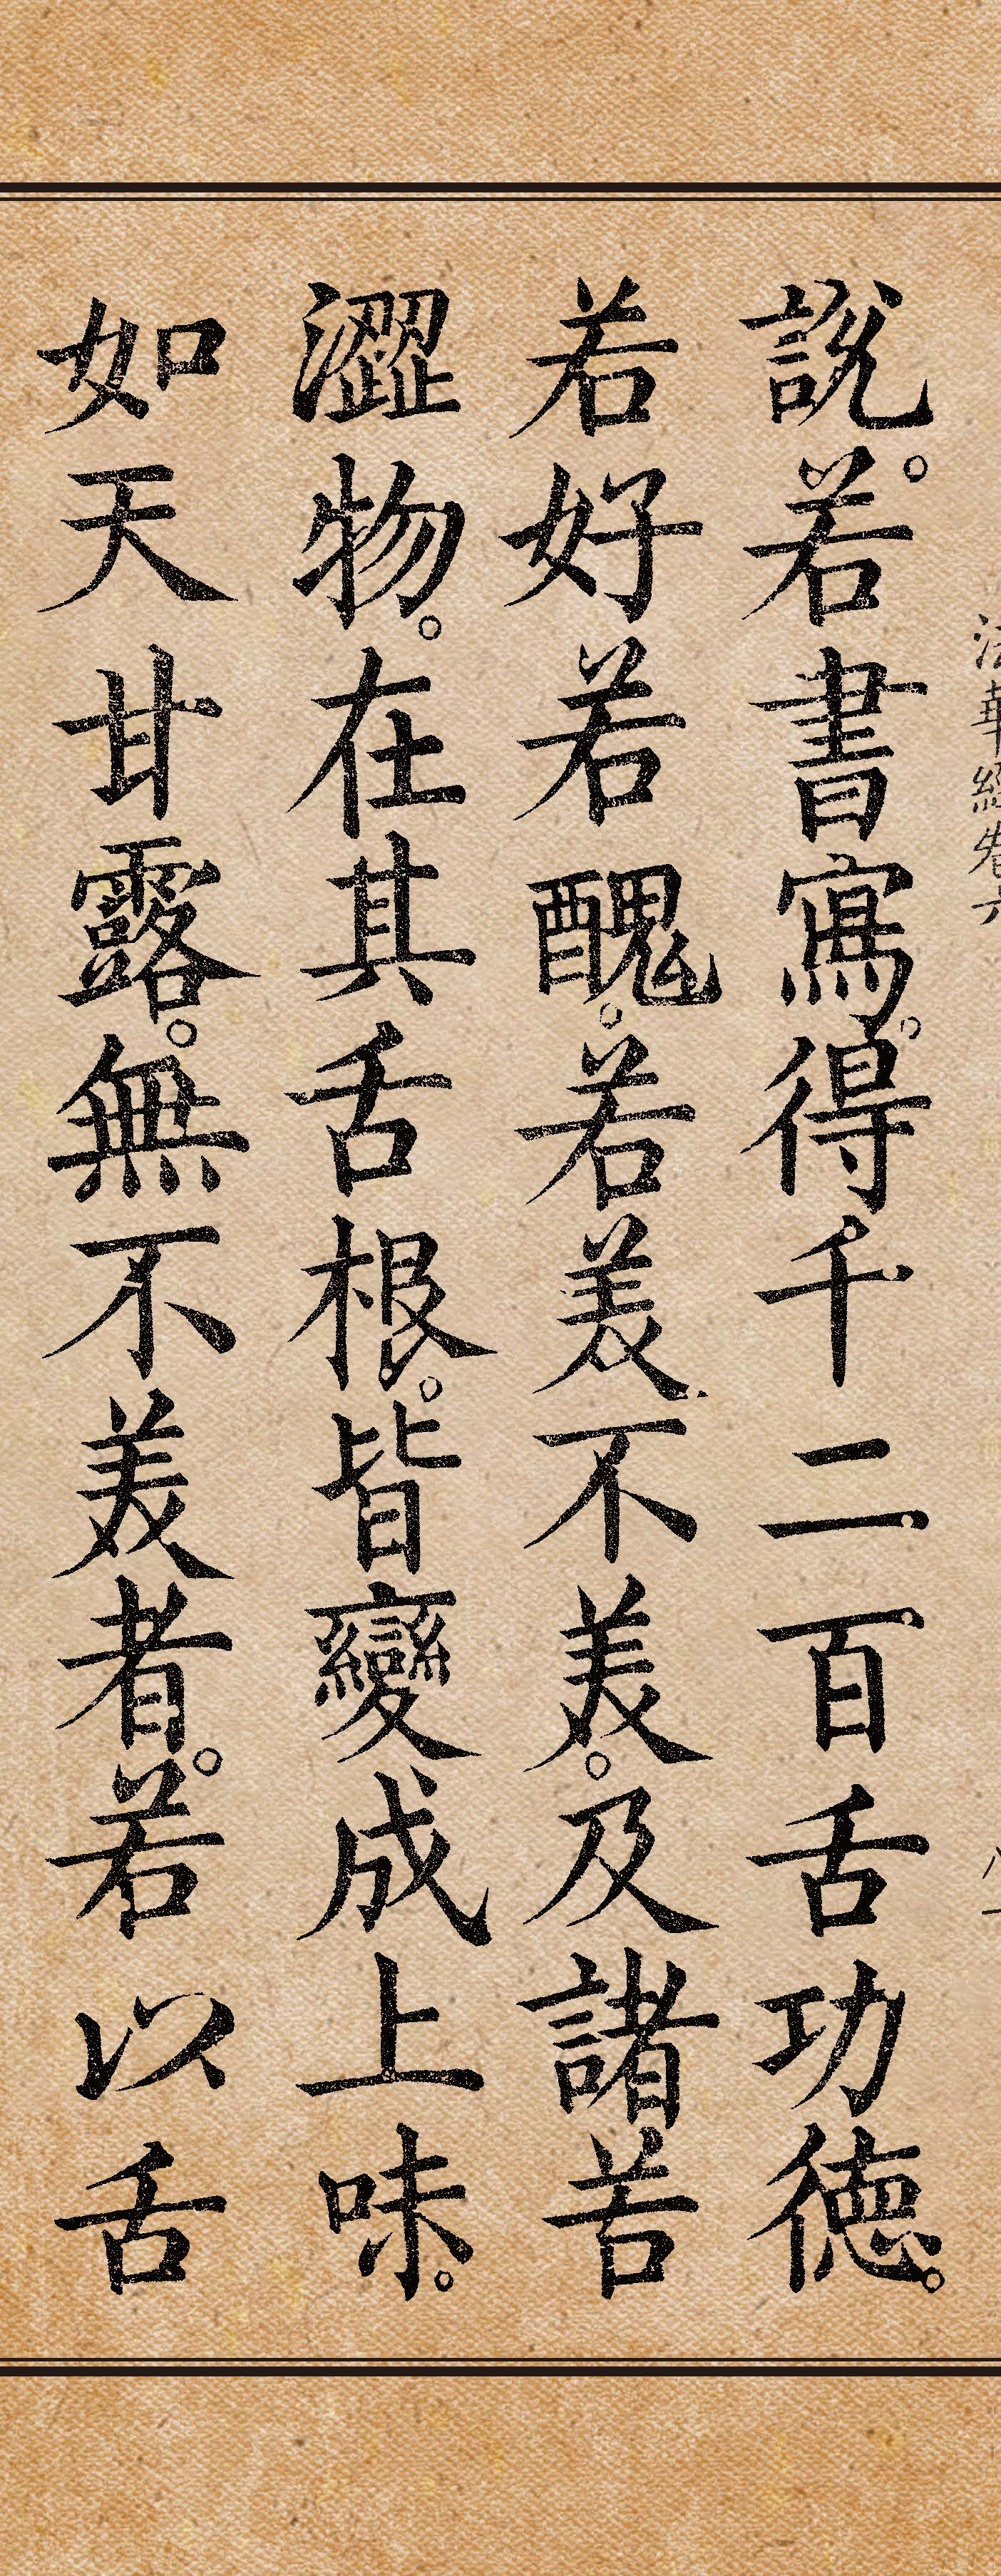 法華經卷六
說。若書寫。得千二百舌功德。
若好若醜。若美不美。及諸苦
澀物。在其舌根。皆變成上味。
如天甘露。無不美者。若以舌